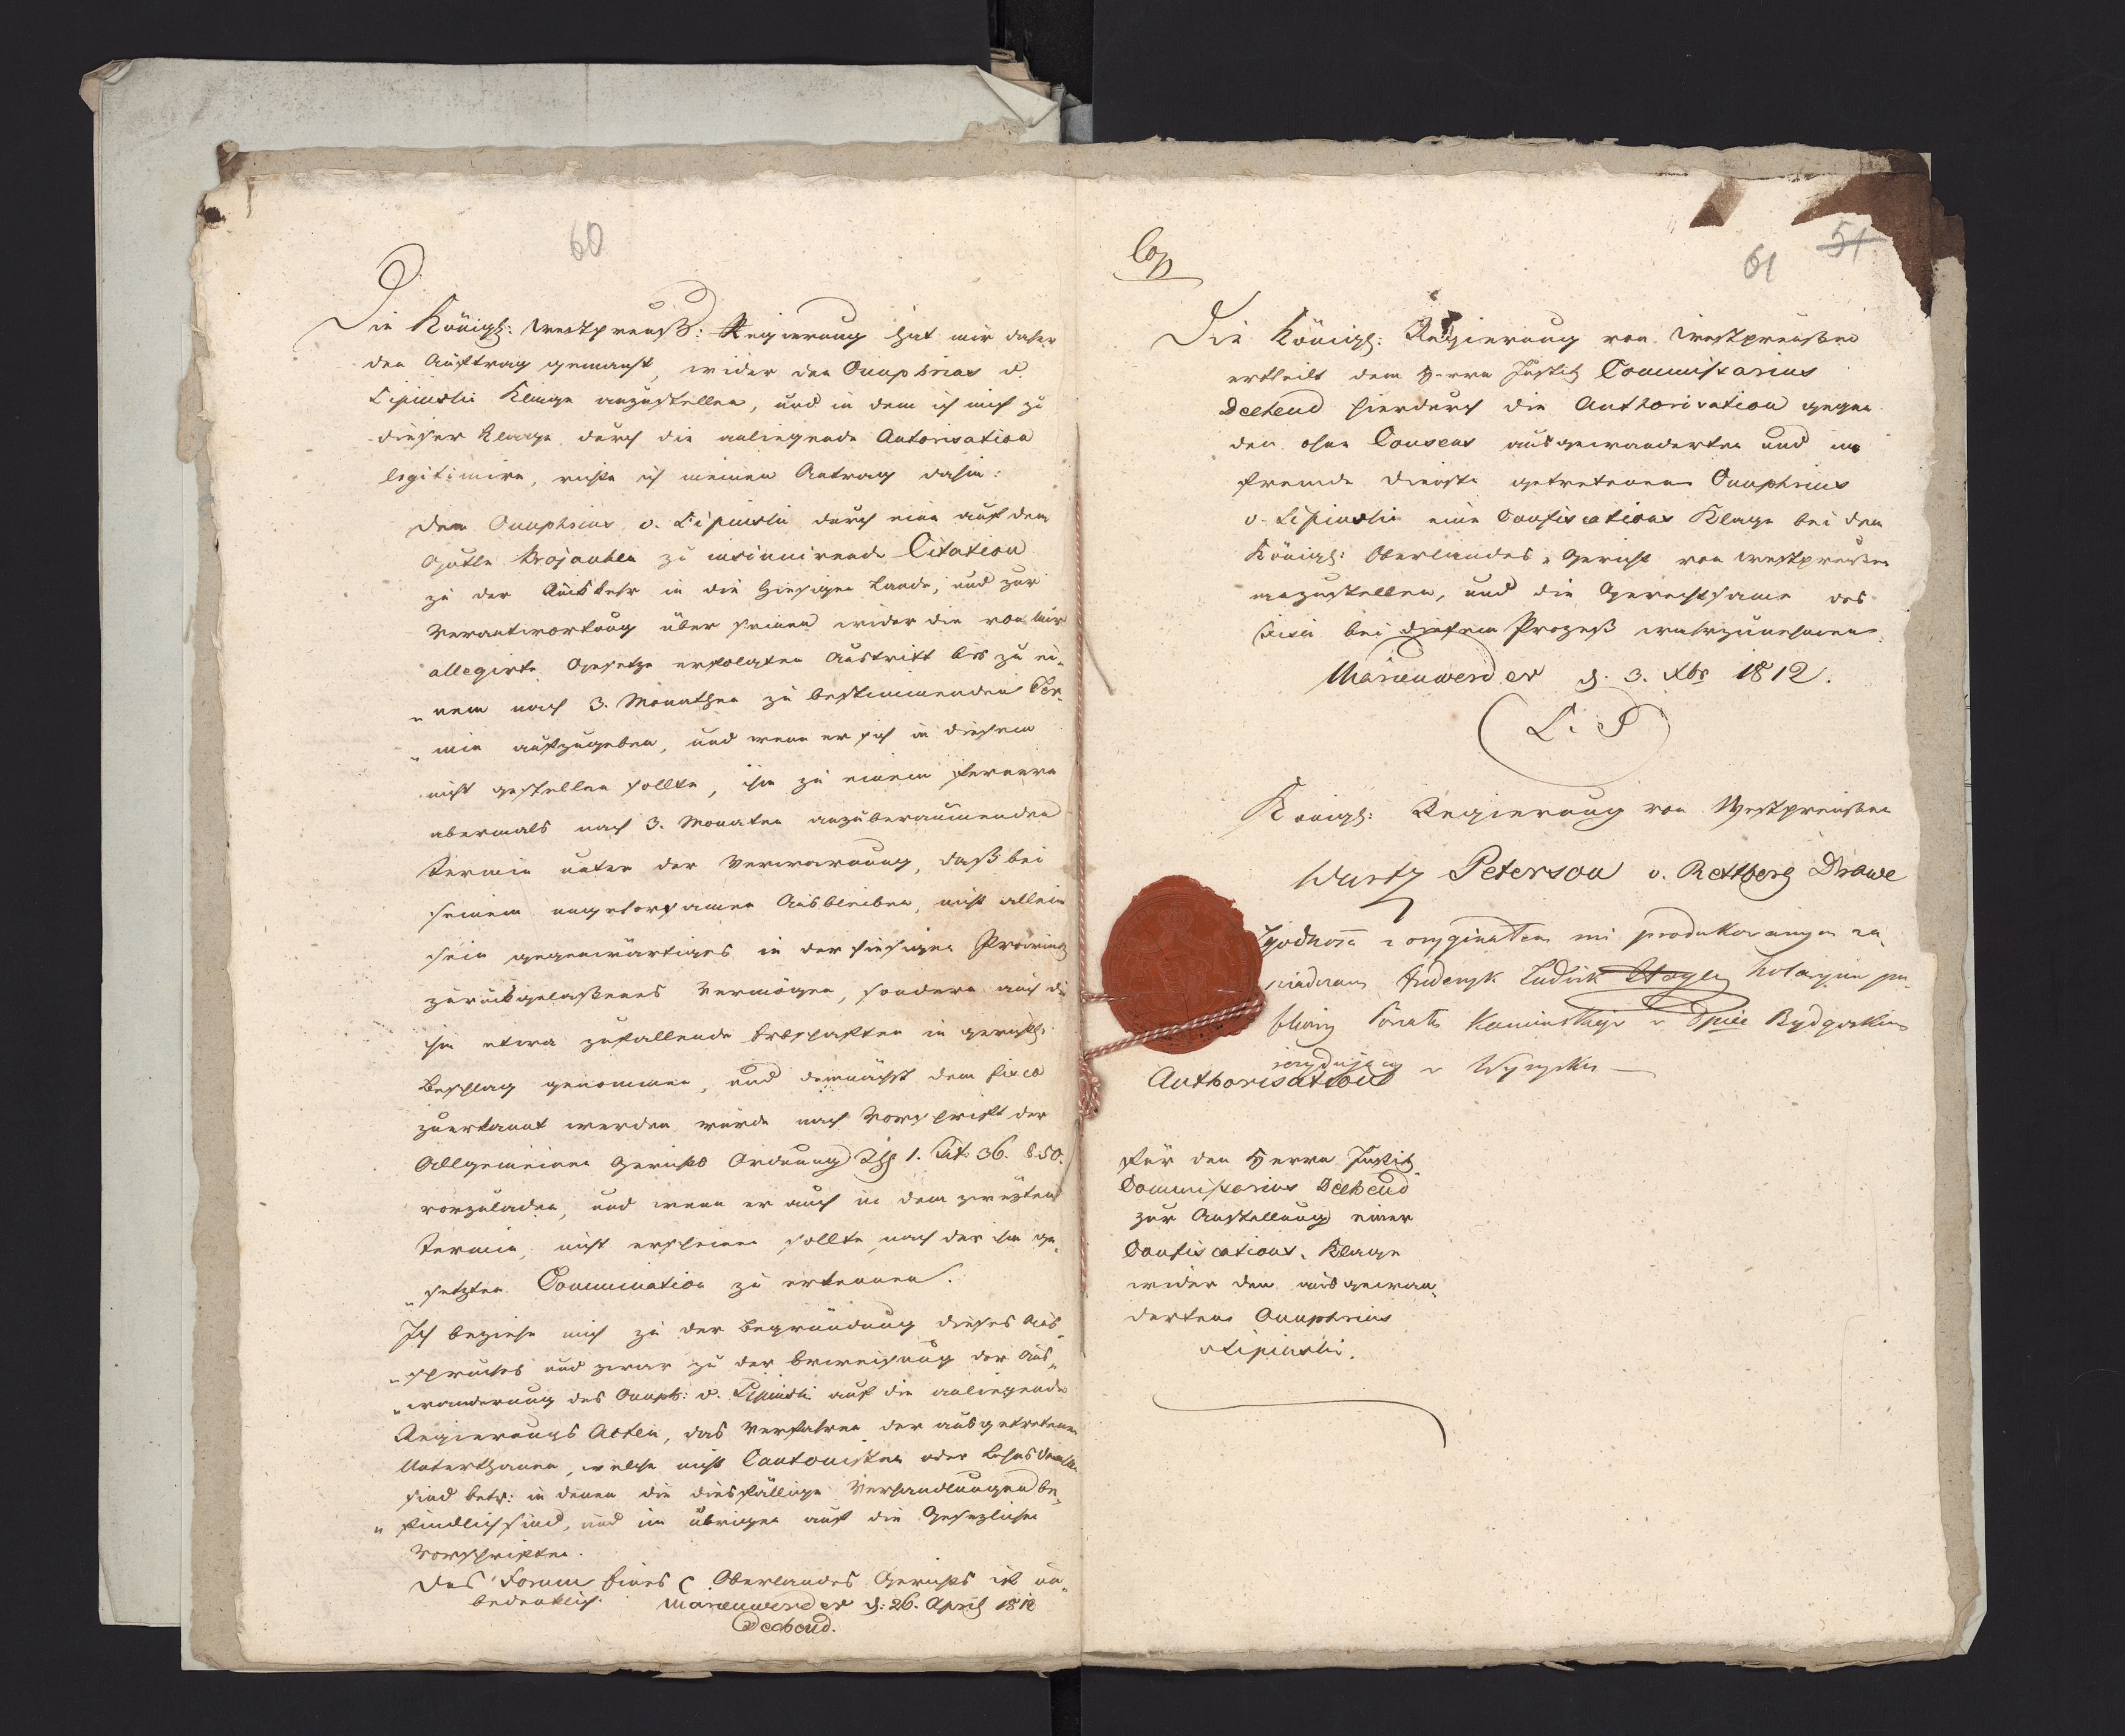 60
Die Königl: Westpreuß: Regierung hat mir daher
den Auftrag gemacht, wider den Onuphrius v.
Lipinski Klage anzustellen, und in dem ich mich zu
dieser Klage durch die anliegende Autorisation
legitimire, richte ich meinen Antrag dahin:
den Onuphrius v. Lipinski durch eine auf dem
Guthe zu insinuirende Citation
zu der Rückkehr in die hiesigen Lande, und zur
Verantwortung über seinen wider die von mir
allegirte Gesetze erfolgten Austritt bis zu ei„
„nem nach 3. Monathen zu bestimmenden Ter„
„min aufzugeben, und wenn er sich in diesem
nicht gestellen sollte, ihn zu einem fernern
abermals nach 3. Monaten anzuberaumenden
Termin unter der Verwarnung, daß bei
seinem ungehorsamen Ausbleiben, nicht allein
sein gegenwärtiges in der hiesigen Provinz
zurückgelaßenes Vermögen, sondern auch die
ihm etwa zufallende Erbschaften in gerichtl:
Beschlag genommen, und demnächst dem Fisco
zuerkannt werden würde nach Vorschrift der
Allgemeinen Gerichts Ordnung Thl 1. Tit: 36. § 50.
vorzuladen, und wenn er auch in dem zweiten
Termin, nicht erscheinen sollte, nach der ihm ge„
„setzten Commination zu erkennen.
Ich beziehe mich zu der Begründung dieses Aus„
„spruchs und zwar zu der Erweisung der Aus„
„wanderung des Onuph: v. Lipinski auf die anliegende
Regierungs Acten, das Verfahren der ausgetretenen
Unterthanen, welche nicht Cantonisten oder
sind betr: in denen die diesfällige Verhandlungen be„
„findlich sind, und im übrigen auf die Gesezlichen
Vorschriften.
Das Forum Eines Oberlandes Gerichts ist un„
bedenklich. Marienwerder d: 26. April 1812
Dechend.
Cop
61 51
Die Königl: Regierung von Westpreußen
ertheilt dem Herrn Justitz Commissarius
Dechend hierdurch die Authorisation gegen
den ohne Consens ausgewanderten und in
fremde Dienste getretenen Onuphrius
v. Lipinski eine Confiscations Klage bei dem
Königl: Oberlandes„Gericht von Westpreußen
anzustellen, und die Gerechtsame des
Fisci bei diesem Prozeß wahrzunehmen.
Marienwerder d. 3. Xbr 1812.
L. S
Königl: Regierung von Westpreußen
Wurtz Peterson v. Rettberg Drawe
Zgodność z oryginałem mi produkowanym za„
świadczam Fryderyk Ludwik Notaryusz pu„
bliczny Powiatu Kamińskiego w Dpcie Bydgoskim
w Wyrzysku —
Authorisation
für den Herrn Justitz
Commissarius Dechend
zur Anstellung einer
Confiscations„Klage
wider den ausgewan„
derten Onuphrius
v Lipinski.